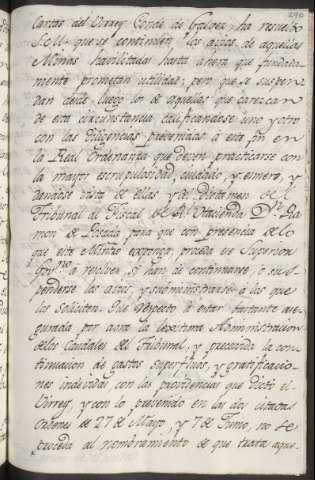 290
Cartas del Virrey Conde de Galvez, ha resuelto
S.M. que se continúen los avios de aquellas
Minas havilitadas hasta ahora que fundada-
mente prometan utilidad; pero que se suspen-
dan desde luego los de aquellas que carezcan
de esta circunstancia calificandose uno y otro
con las Diligencias prevenidas à este fin en
la Real Ordenanza que deven practicarse con
la mayor escrupulosidad, cuidado, y esmero, y
dandose vista de ellas y del Dictamen del
Tribunal al Fiscal de Rl. Hacienda Dn. Ra-
mon de Posada para que con presencia de lo
que este Ministro exponga, proceda ese Superior
Govno. à resolver si han de continuarse, ó sus-
penderse los avios, y subministrarse à las que
los soliciten. Que respecto à estar bastante ase-
gurada por aora la legitima Administracion
de los Caudales del Tribunal, y precavida la con-
tinuacion de gastos superfluos, y gratificacio-
nes indevidas con las providencias que dictó el
Virrey, y con lo prevenido en las dos citadas
Ordenes de 27 de Mayo, y 7 de Junio, no se
proceda al nombramiento de que trata aque-